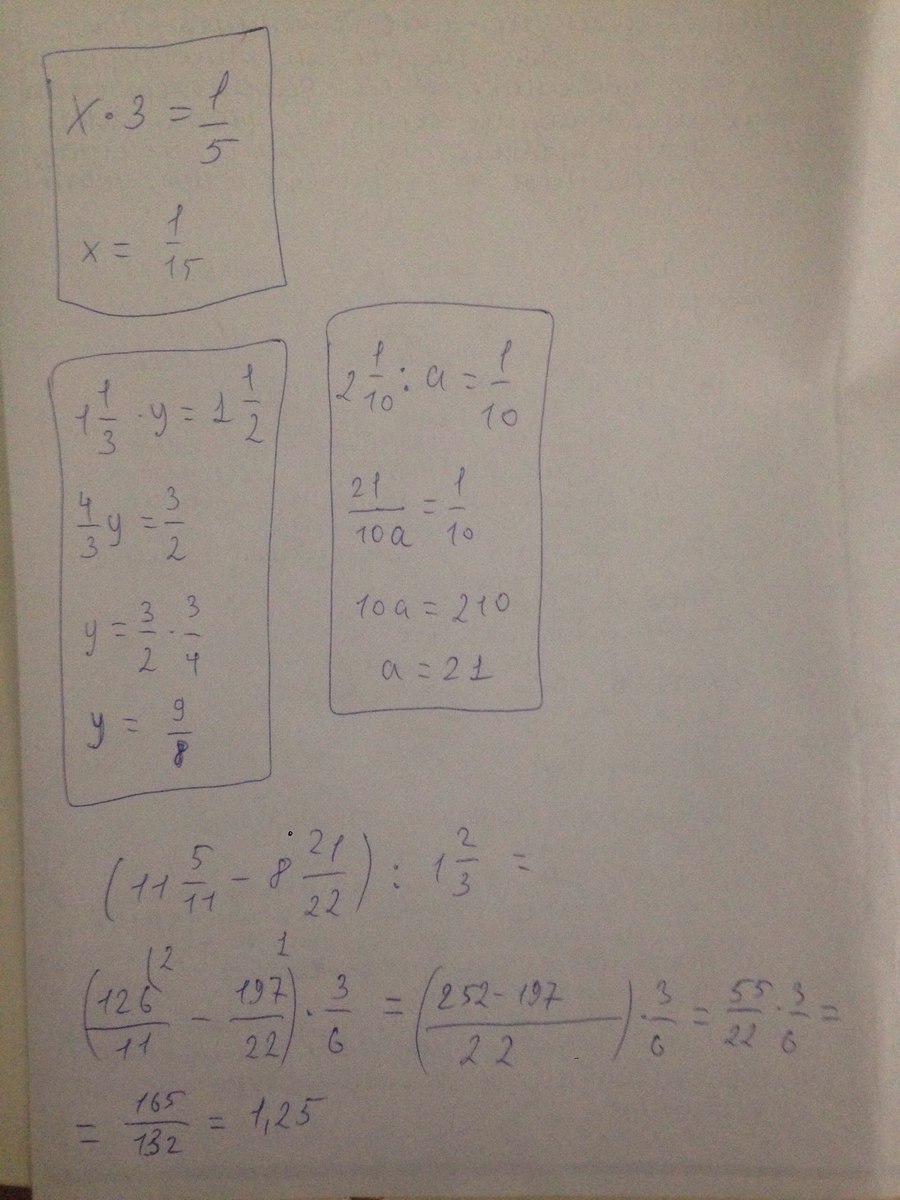 x · 3 = 1/5
x = 1/15
1 1/3 · y = 1 1/2
4/3 y = 3/2
y = 3/2 · 3/4
y = 9/8
2 1/10 : a = 1/10
21/10a = 1/10
10a = 210
a = 21
(11 5/11 - 8 21/22) : 1 2/3 =
(126/11 (2 - 197/22 1) · 3/6 = (252-197/22) · 3/6 = 55/22 · 3/6 =
= 165/132 = 1,25